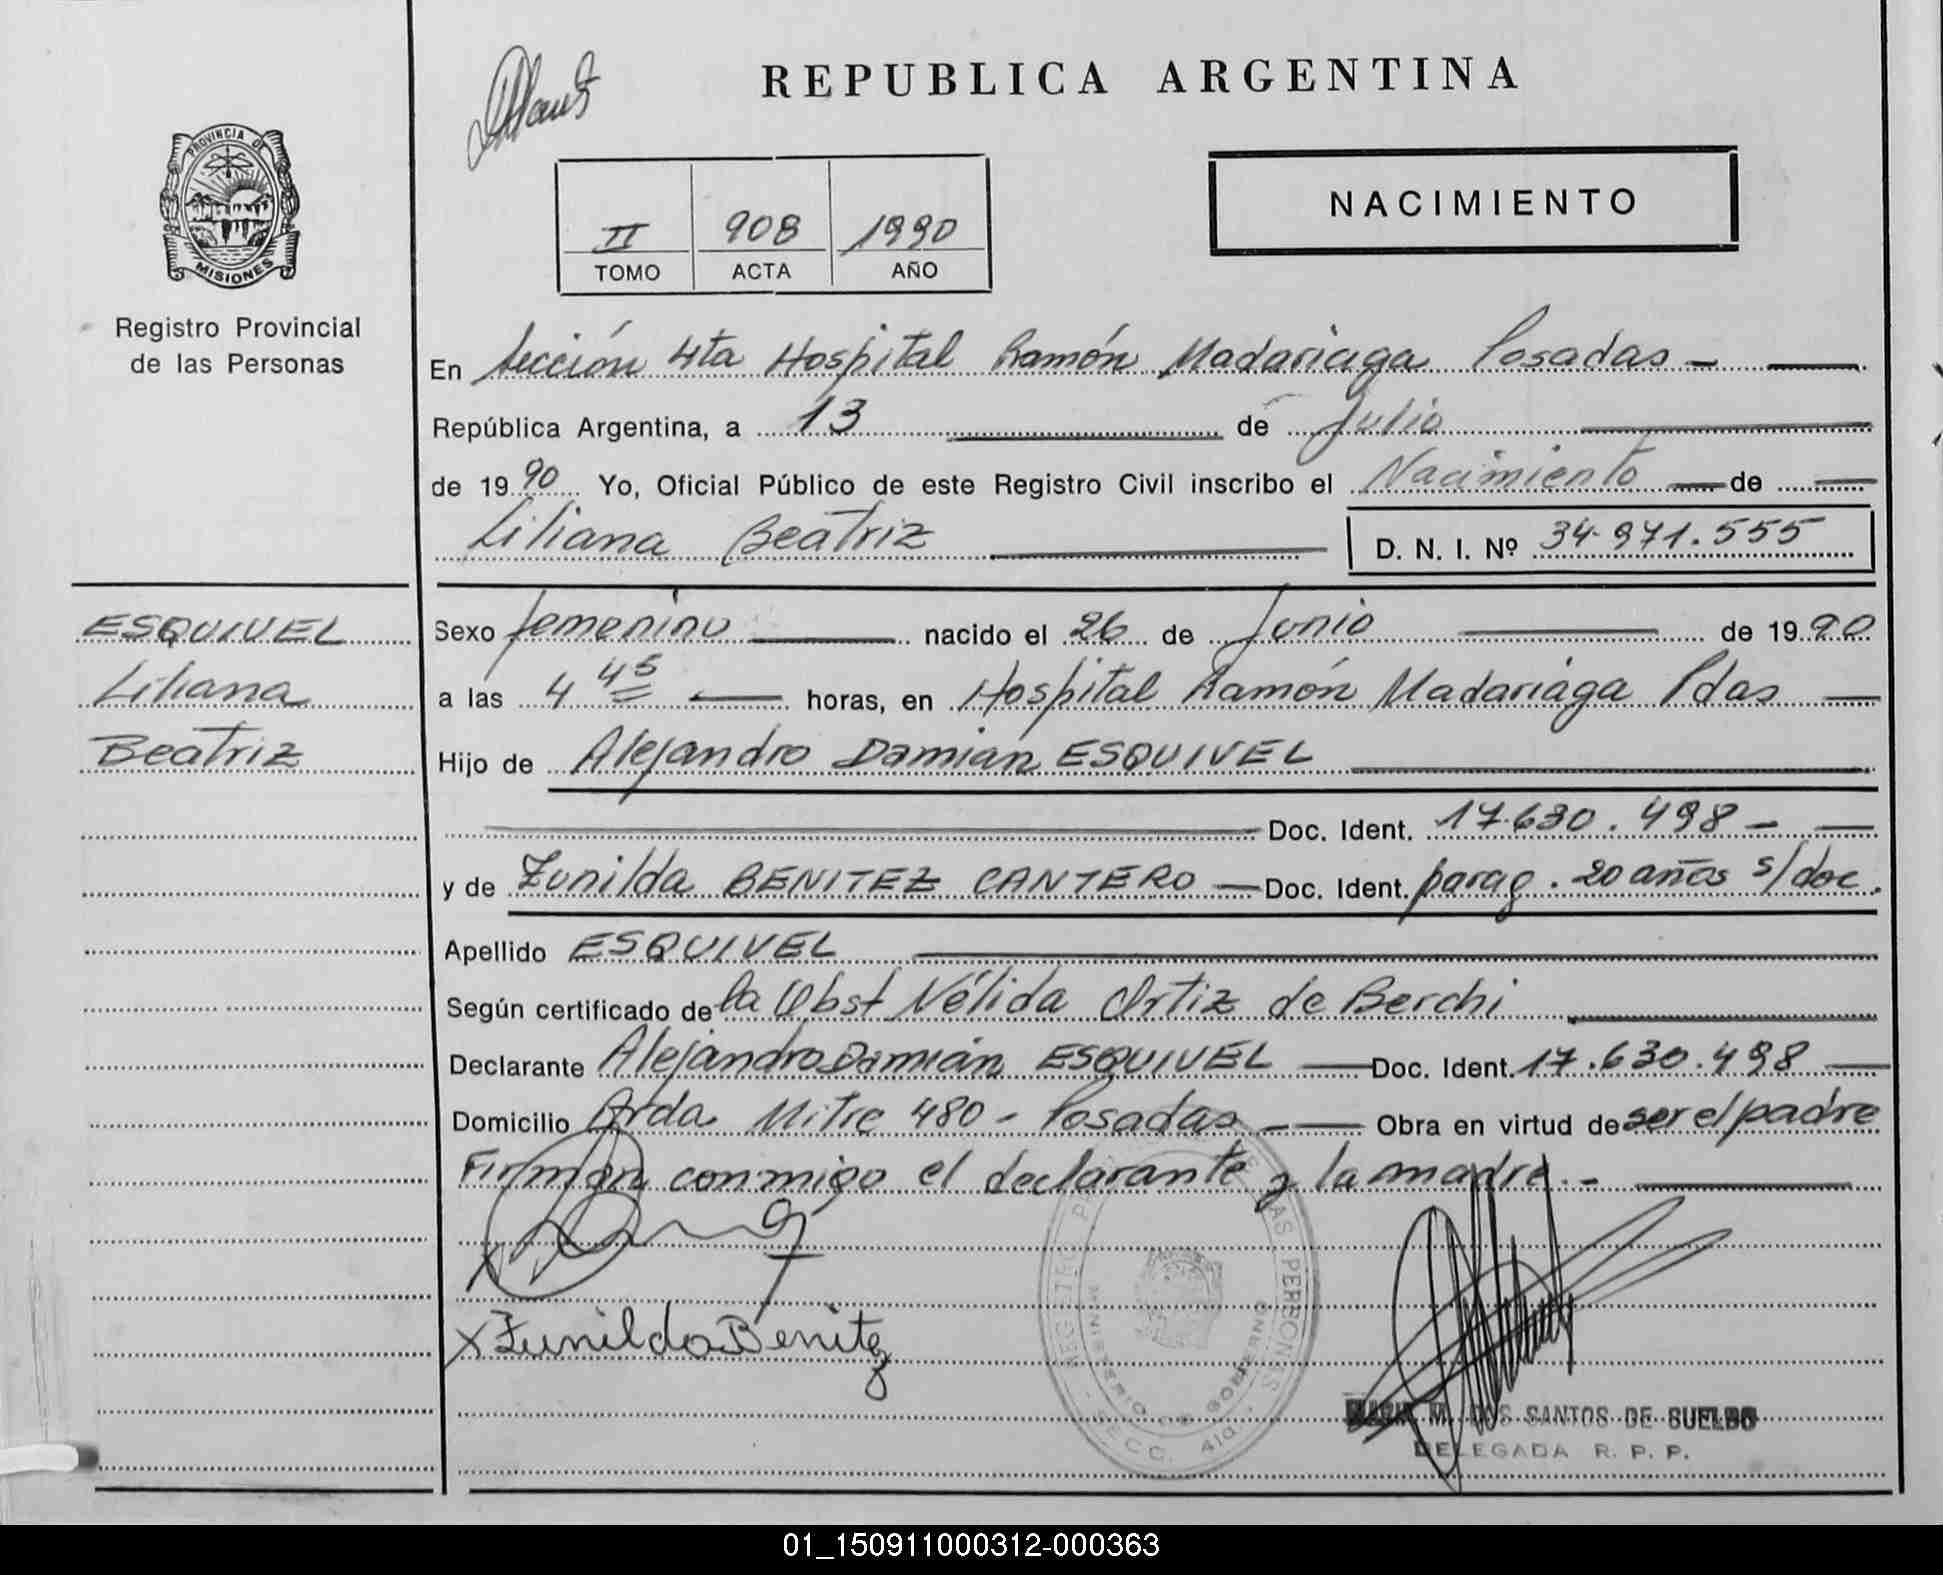 REPUBLICA ARGENTINA
PROVINCIA DE
MISIONES
Registro Provincial
de las Personas
II 908 1990
TOMO ACTA AÑO
NACIMIENTO
En Sección 4ta Hospital Ramón Madariaga Posadas -
República Argentina, a 13 de Julio
de 1990 Yo, Oficial Público de este Registro Civil inscribo el Nacimiento de
Liliana Beatriz D. N. I. Nº 34.971.555
ESQUIVEL
Liliana
Beatriz
Sexo femenino nacido el 26 de Junio de 1990
a las 4 45 horas, en Hospital Ramón Madariaga Pdas
Hijo de Alejandro Damián ESQUIVEL
Doc. Ident. 17.630.498 -
y de Zunilda BENITEZ CANTERO Doc. Ident. parag. 20 años s/doc.
Apellido ESQUIVEL
Según certificado de la Obst Nélida Ortiz de Berchi
Declarante Alejandro Damián ESQUIVEL Doc. Ident. 17.630.498
Domicilio Avda Mitre 480 - Posadas Obra en virtud de ser el padre
Firman conmigo el declarante y la madre.-
x Zunilda Benitez
REGISTRO PERSONAS
MINISTERIO DE GOBIERNO
SECC. 4ta.
M. DOS SANTOS DE SUELDO
DELEGADA R. P. P.
01_150911000312-000363